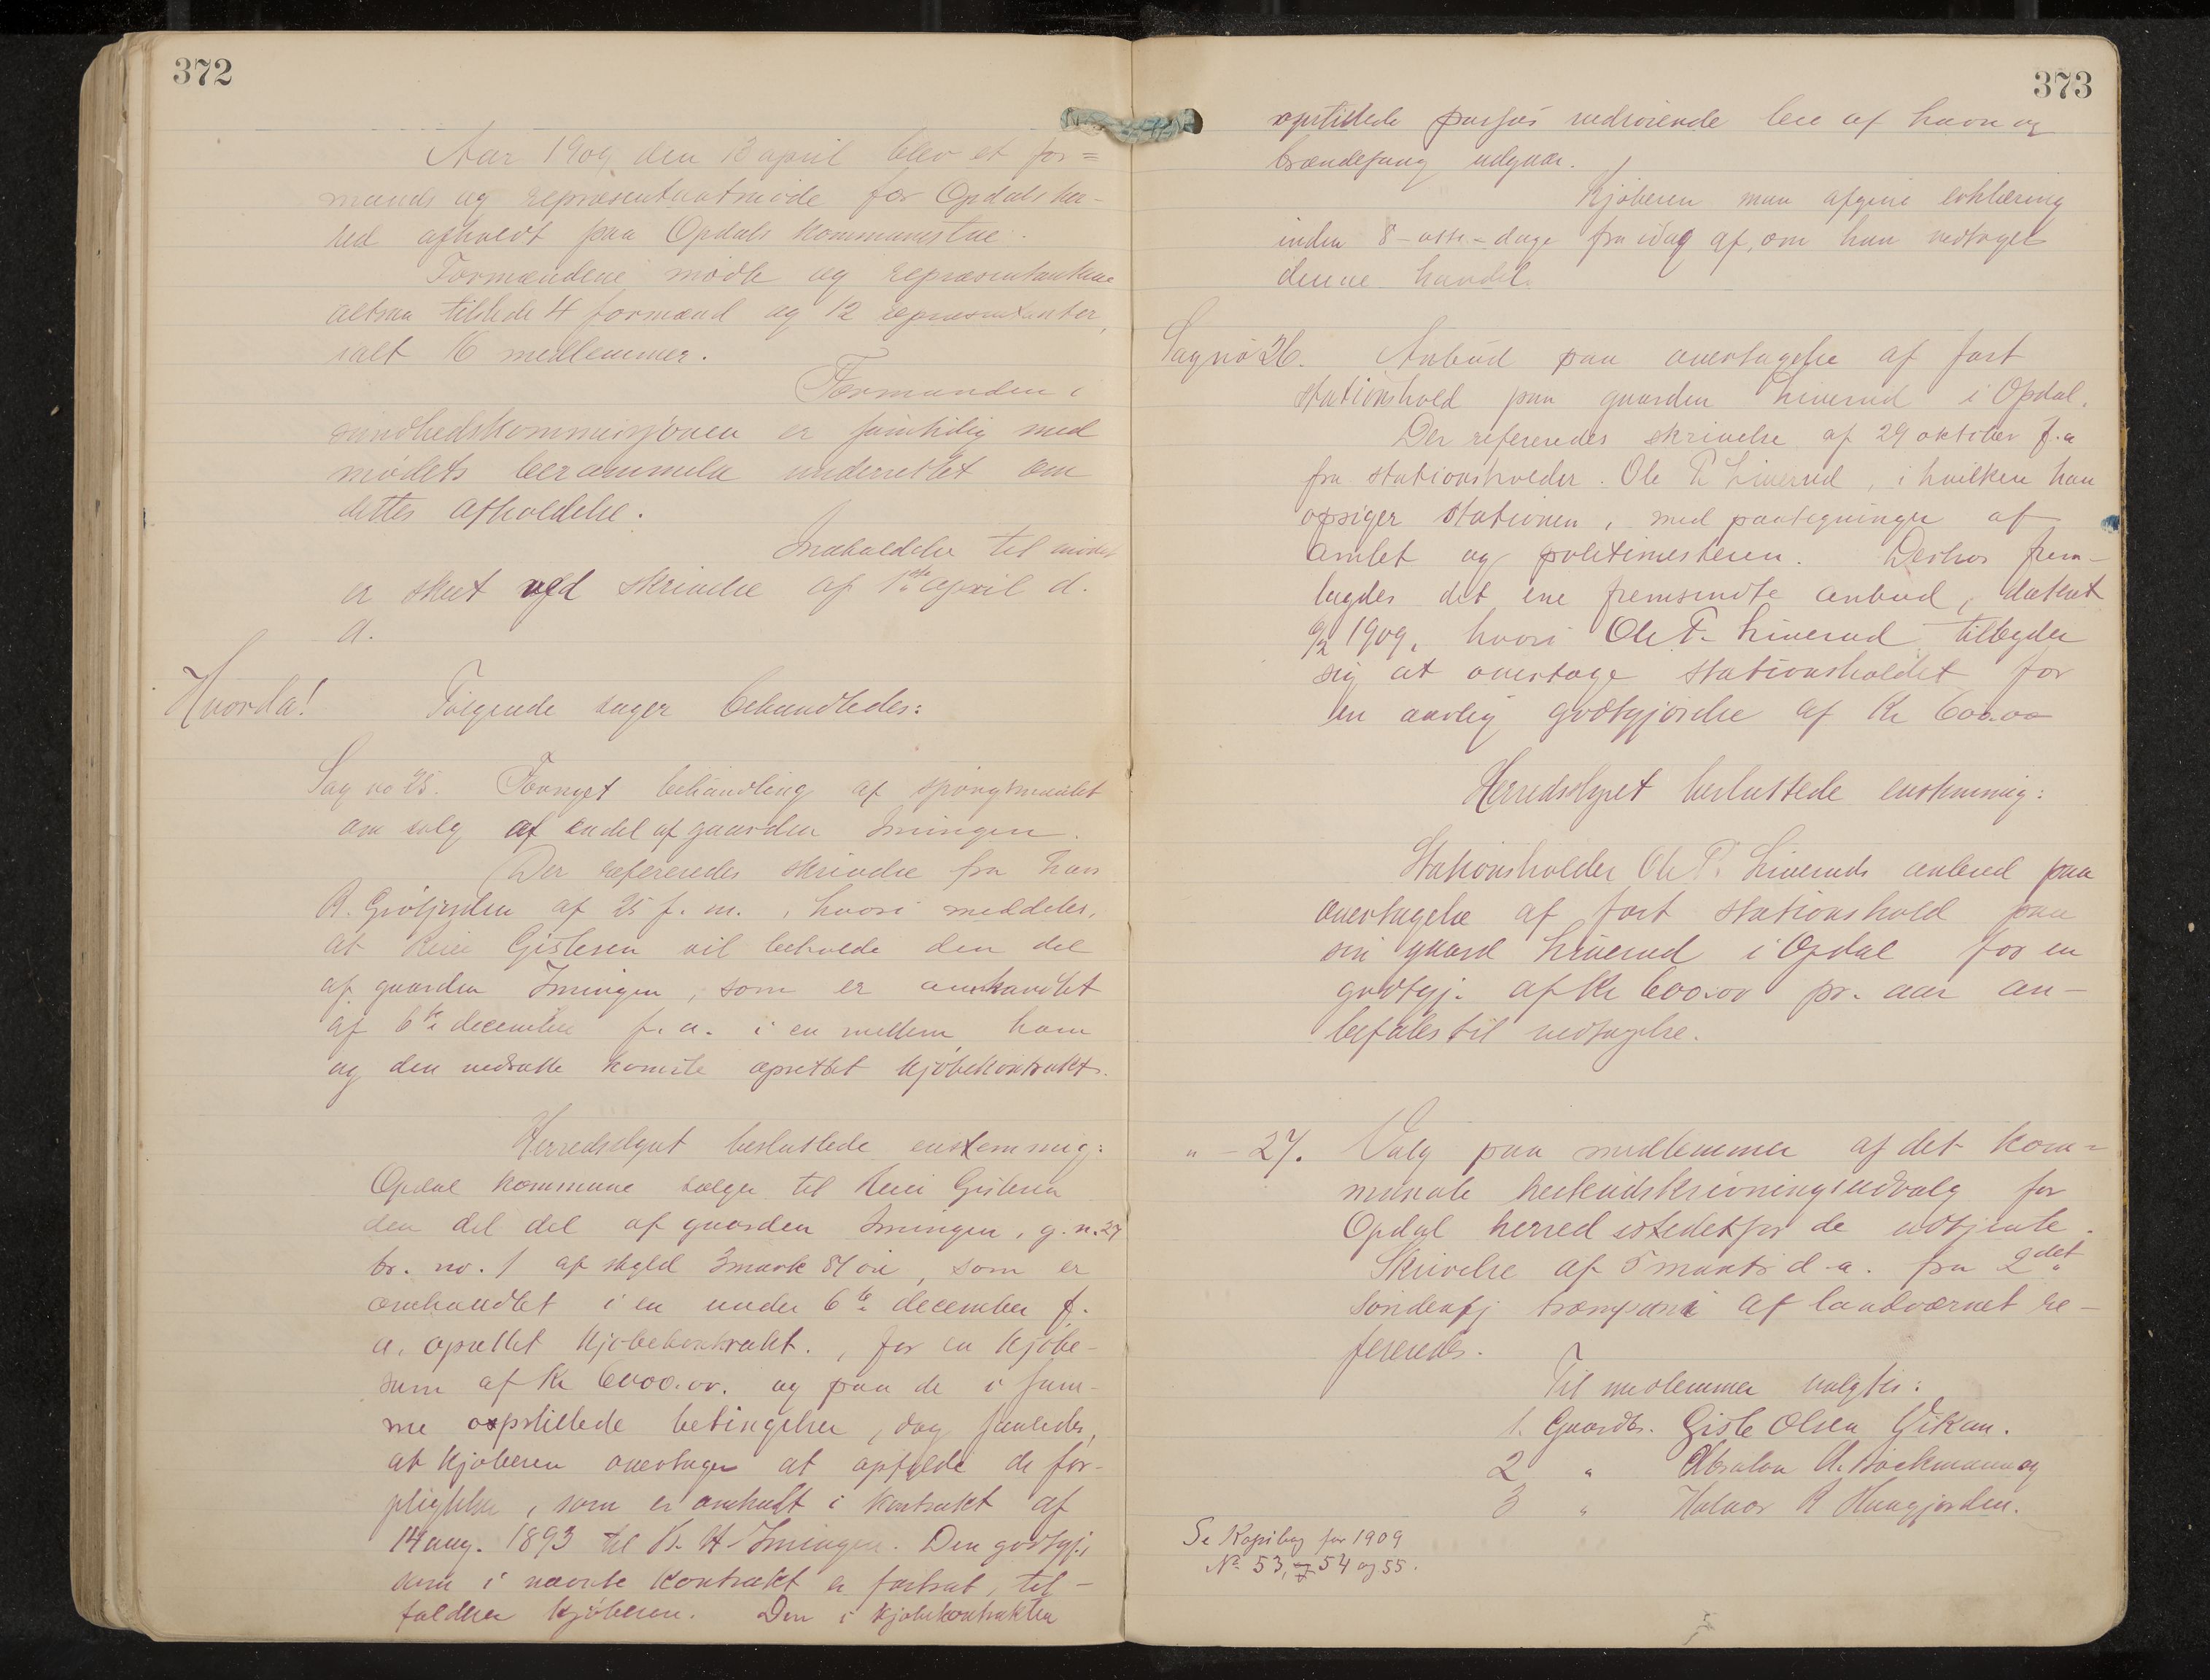 372
Aar 1909 den 13 april blev et for=
mands og repræsentantmøde for Opdals her-
red afholdt paa Opdals kommunestue.
Formændene mødte og repræsentanterne
altsaa tilstede 4 formænd og 12 repræsentanter,
ialt 16 medlemmer.
Formanden i
sundhedskommissjonen er samtidig med
mødets berammelse underrettet om
dettes afholdelse.
Indkaldelse til mødet
er skeet ved skrivelse af 1ste april d.
a.
Hvorda! Følgende sager behandledes:
Sag no 25. Fornyet behandling af spørgsmaalet
om salg af endel af gaarden Imingen.
Der refereredes skrivelse fra Knn
R. Grøtjorden af 25 f. m., hvori meddeles,
at Reier Gislesen vil beholde den del
af gaarden Imingen, som er omhandlet
af 6te december f. a. i en mellem ham
og den nedsatte komite oprettet kjøbekontrakt.
Herredsstyret besluttede enstemmig:
Opdal kommune sælger til Reier Gislesen
den del del af gaarden Imingen, g. n. 27
br. no. 1 af skyld 3 mark 84 øre, som er
omhandlet i en under 6te december f.
a. oprettet kjøbekontrakt., for en kjøbe-
sum af Kr 6000.00. og paa de i sam-
me opstillede betingelser, dog saaledes,
at kjøberen overtager at opfylde de for-
pligtelser, som er omhandlt i kontrakt af
14 aug. 1893 til K. H. Imingen. Den godtgj.,
som i nævnte kontrakt er fastsat, til-
falder kjøberen. Den i kjøbekontrakten
373
opstillede passus vedrørende leie af havn og
brændefang udgaar.
Kjøberen maa afgive erklæring
inden 8-otte-dage fra idag af, om han vedtager
denne handel.
Sag no 26. Anbud paa overtagelse af fast
stationshold paa gaarden Liverud i Opdal.
Der refereredes skrivelse af 29 oktober f.a
fra stationsholder Ole T. Liverud, i hvilken han
opsiger stationen, med paategninger af
amtet og politimesteren. Derhos frem-
lagdes det ene fremsendte anbud, datert
1909, hvori Ole T. Liverud tilbyder
sig at overtage stationsholdet for
en aarlig godtgjørelse af Kr 600.00
Herredsstyret besluttede enstemmig:
Stationsholder Ole T. Liveruds anbud paa
overtagelse af fast stationshold paa
sin gaard Liverud i Opdal for en
godtgj. af Kr 600.00 pr. aar an-
befales til vedtagelse.
" - 27. Valg paa medlemmer af det kom=
munale hesteudskrivningsudvalg for
Opdal herred istedetfor de udtjente.
Skrivelse af 5 marts d.a. fra 2det
søndenfj. trænkompani af landværnet re-
fereredes.
Til medlemmer valgtes:
1. Gaardbr. Gisle Olsen Vikan.
2 " Absalon A. Bøckmann og
3 " Halvor R Haugjorden.
Se Kopibog for 1909
No 53, 54 og 55.